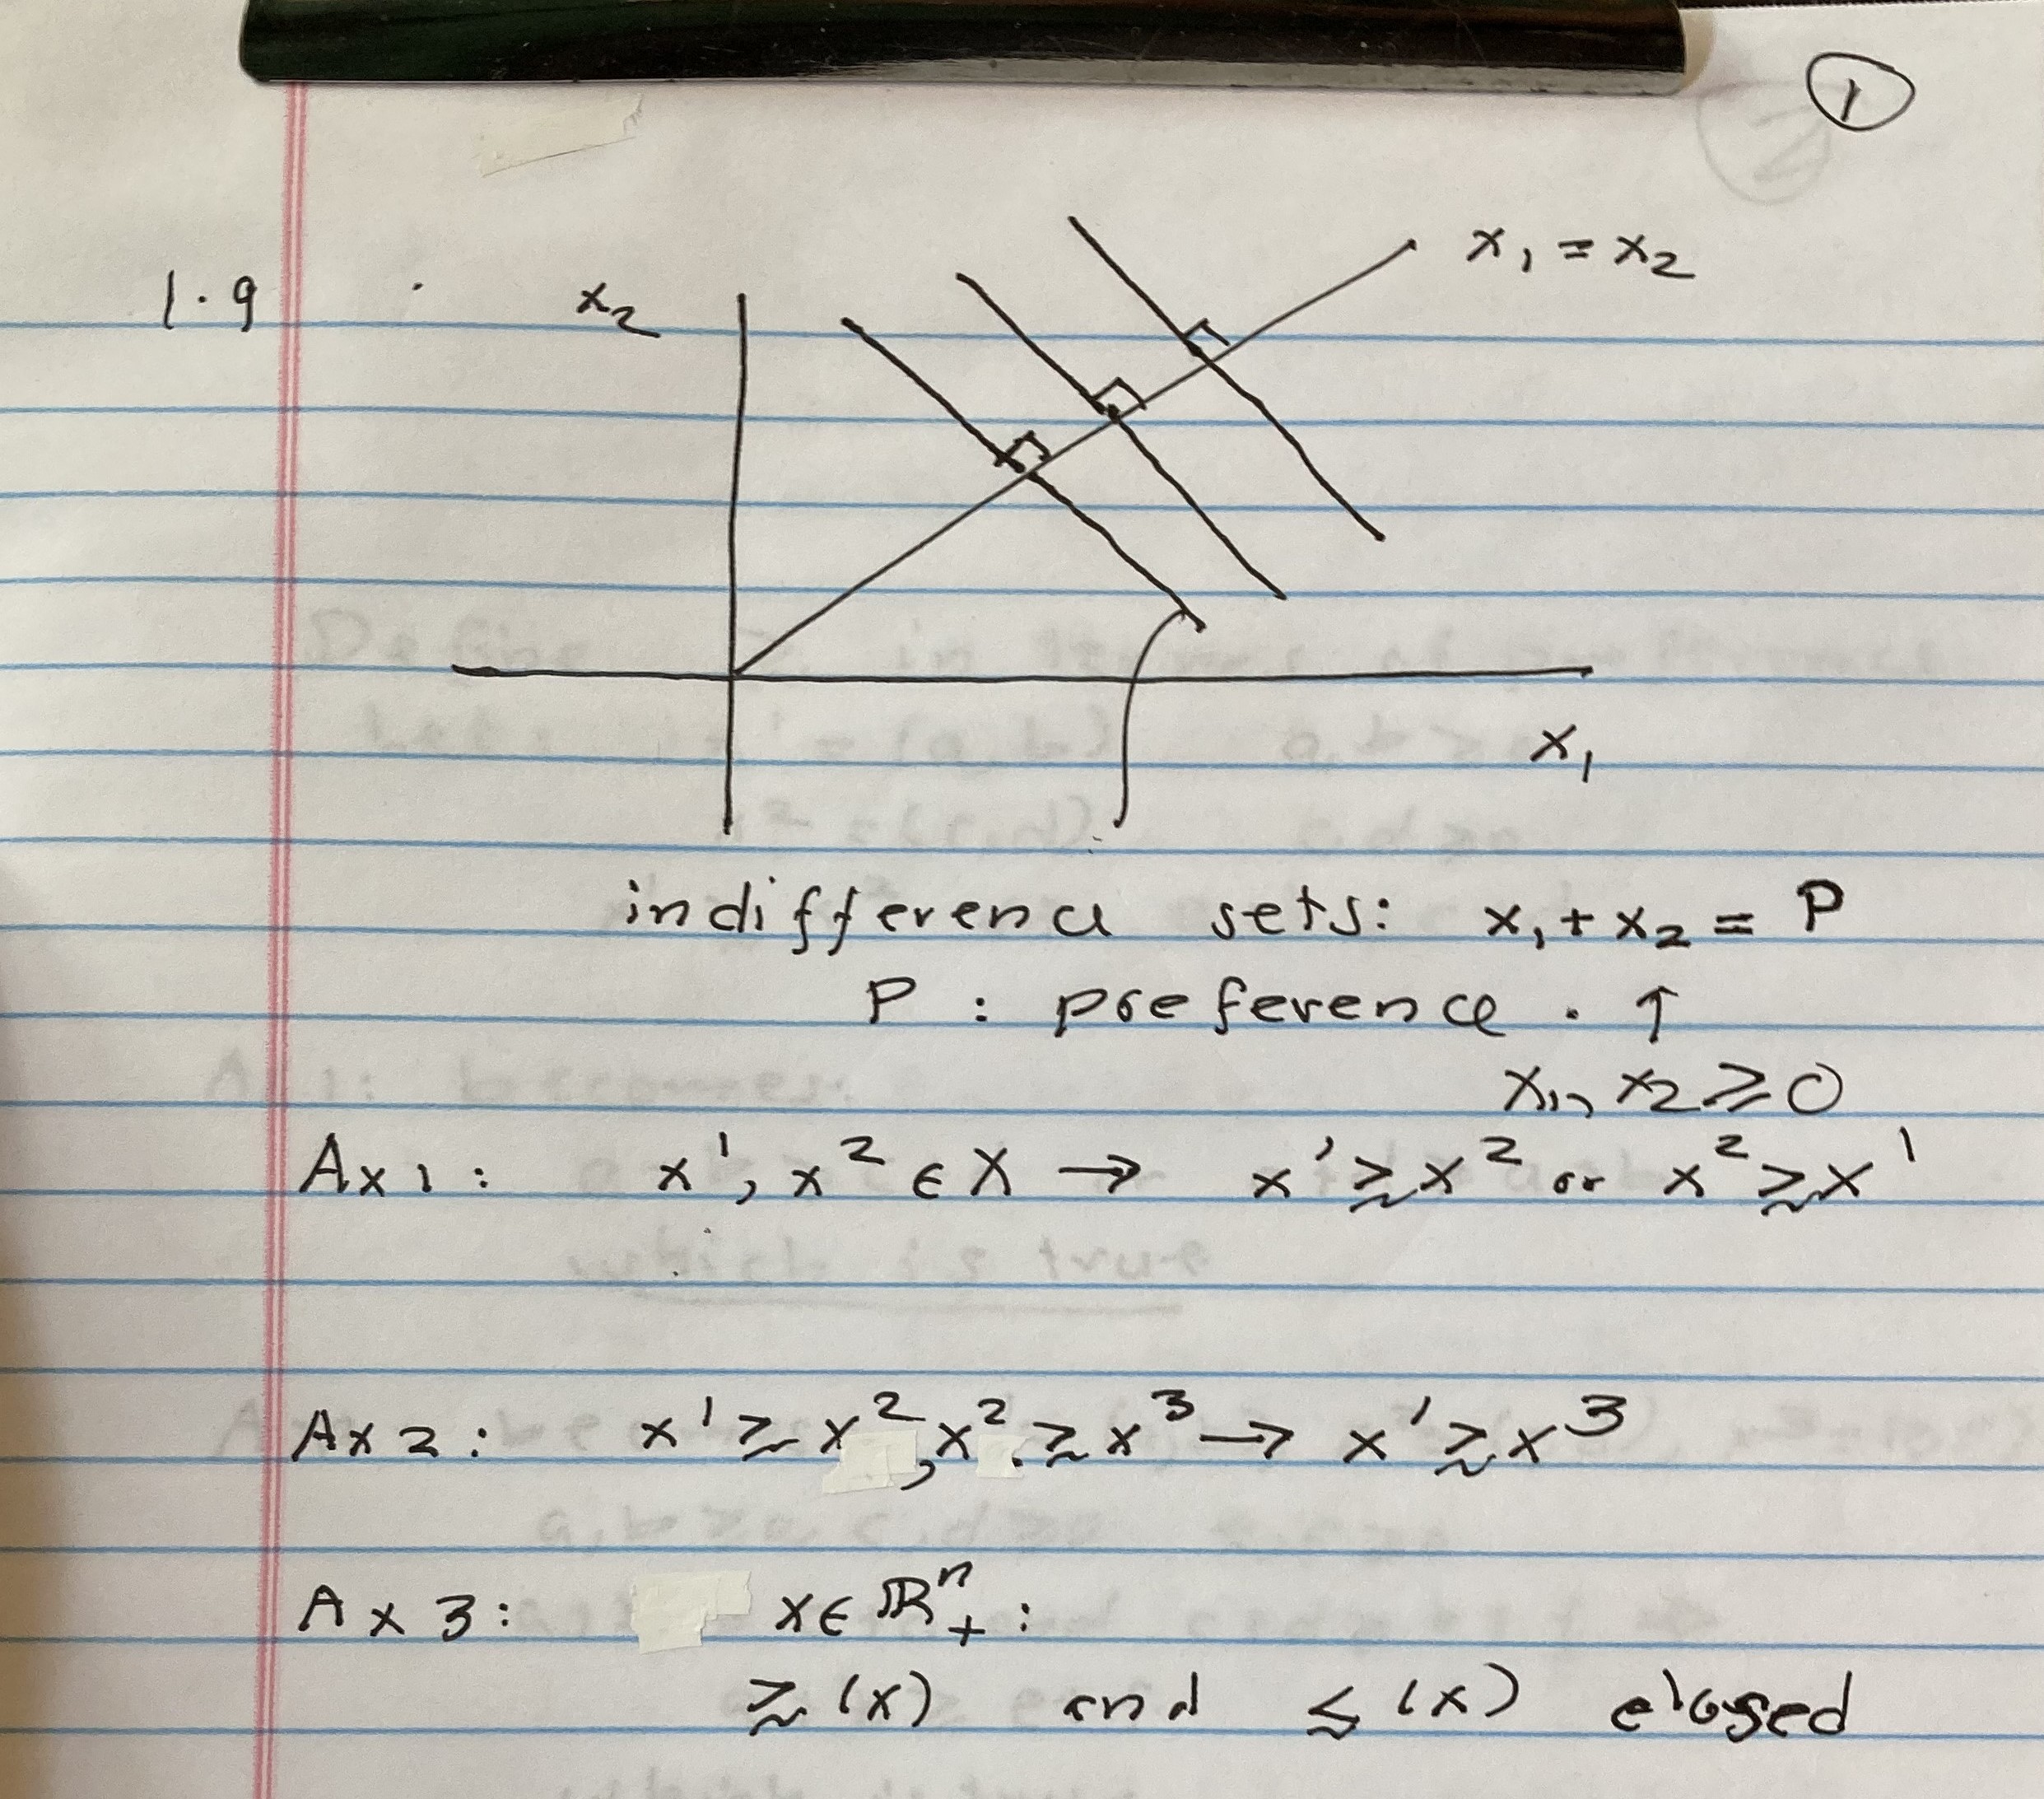 1
x₁ = x₂
1.9 x₂
x₁
indifference sets: x₁ + x₂ = P
P : preference . ↑
x₁, x₂ ≥ 0
Ax 1 : x¹, x² ∈ X → x¹ ≿ x² or x² ≿ x¹
Ax 2 : x¹ ≿ x², x² ≿ x³ → x¹ ≿ x³
Ax 3 : x ∈ ℝⁿ₊ :
≿ (x) and ≾ (x) closed